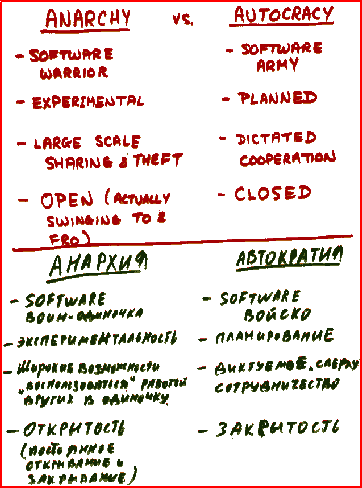 ANARCHY vs. AUTOCRACY
- SOFTWARE WARRIOR
- SOFTWARE ARMY
- EXPERIMENTAL
- PLANNED
- LARGE SCALE
SHARING & THEFT
- DICTATED
COOPERATION
- OPEN (ACTUALLY
SWINGING TO &
FRO)
- CLOSED
АНАРХИЯ
АВТОКРАТИЯ
- SOFTWARE
ВОИН-ОДИНОЧКА
- SOFTWARE
ВОЙСКО
- ЭКСПЕРИМЕНТАЛЬНОСТЬ
- ПЛАНИРОВАНИЕ
- ШИРОКИЕ ВОЗМОЖНОСТИ
"ВОСПОЛЬЗОВАТЬСЯ" РАБОТОЙ
ДРУГИХ В ОДИНОЧКУ
- ДИКТУЕМОЕ СВЕРХУ
СОТРУДНИЧЕСТВО
- ОТКРЫТОСТЬ
(ПОСТОЯННОЕ
ОТКРЫВАНИЕ И
ЗАКРЫВАНИЕ)
- ЗАКРЫТОСТЬ